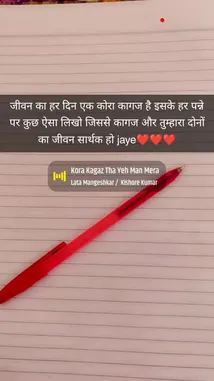 जीवन का हर दिन एक कोरा कागज है इसके हर पन्ने
पर कुछ ऐसा लिखो जिससे कागज और तुम्हारा दोनों
का जीवन सार्थक हो jaye❤️❤️❤️
Kora Kagaz Tha Yeh Man Mera
Lata Mangeshkar / Kishore Kumar